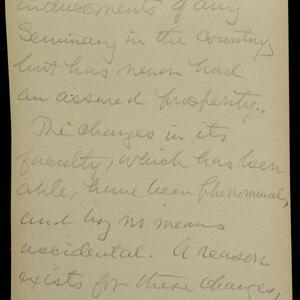 inducements of any
Seminary in the country,
but has never had
an assured prosperity.
The changes in its
faculty, which has been
able, have been phenomenal,
and by no means
accidental. A reason
exists for these changes,